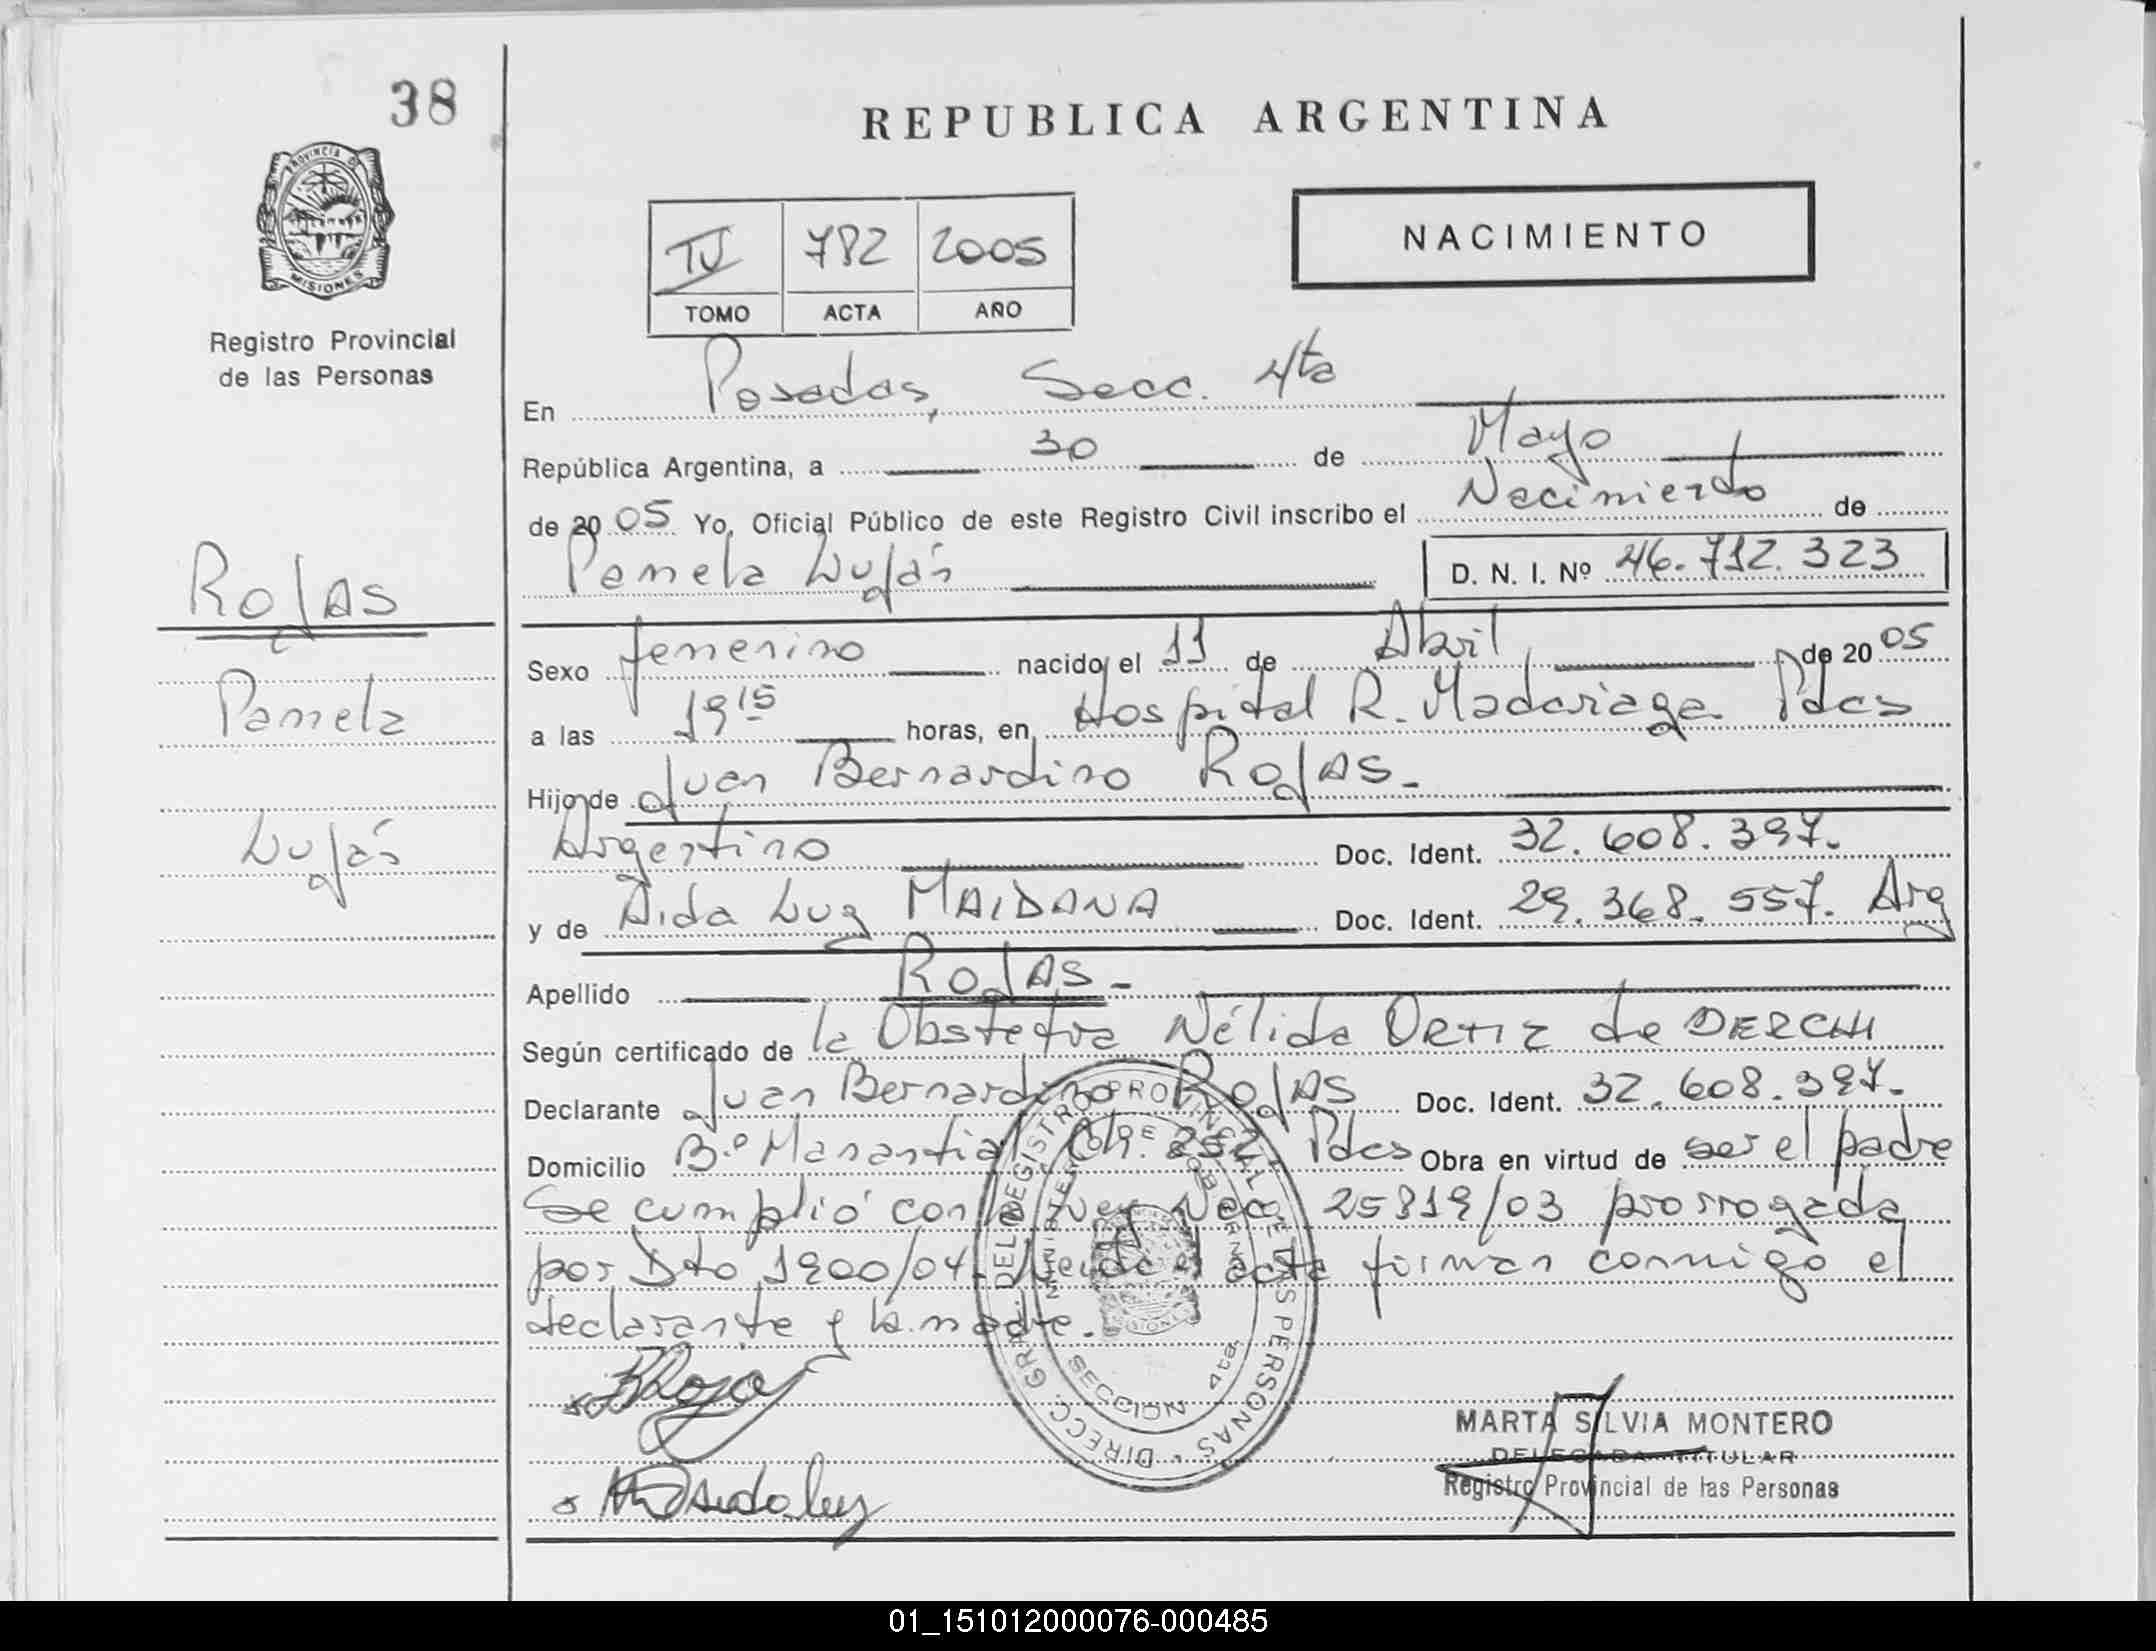 38
REPUBLICA ARGENTINA
PROVINCIA D
MISIONES
Registro Provincial
de las Personas
IV 782 2005
TOMO ACTA AÑO
NACIMIENTO
En Posadas, Secc. 4ta
República Argentina, a 30 de Mayo
de 2005 Yo, Oficial Público de este Registro Civil inscribo el Nacimiento de
Pamela Luján D. N. I. Nº 46.712.323
Rojas
Pamela
Luján
Sexo femenino nacido el 11 de Abril de 2005
a las 19 15 horas, en Hospital R. Madariaga Pdas
Hijo de Juan Bernardino Rojas.-
Argentino Doc. Ident. 32.608.397.
y de Aida Luz MAIDANA Doc. Ident. 29.368.557. Arg
Apellido Rojas-
Según certificado de la Obstetra Nélida Ortiz de DERCHI
Declarante Juan Bernardino Rojas Doc. Ident. 32.608.397.
Domicilio B.º Manantial Ch. 252 Pdas Obra en virtud de ser el padre
Se cumplió con la Ley Nac. 25819/03 prorrogada
por Dto 1900/04. Leída el acta firman conmigo el
declarante y la madre.
DIRECC. GRAL. DEL REGISTRO PROVINCIAL DE LAS PERSONAS
SECCION 4ta.
B Rojas
Aida luz
MARTA SILVIA MONTERO
DELEGADA TITULAR
Registro Provincial de las Personas
01_151012000076-000485